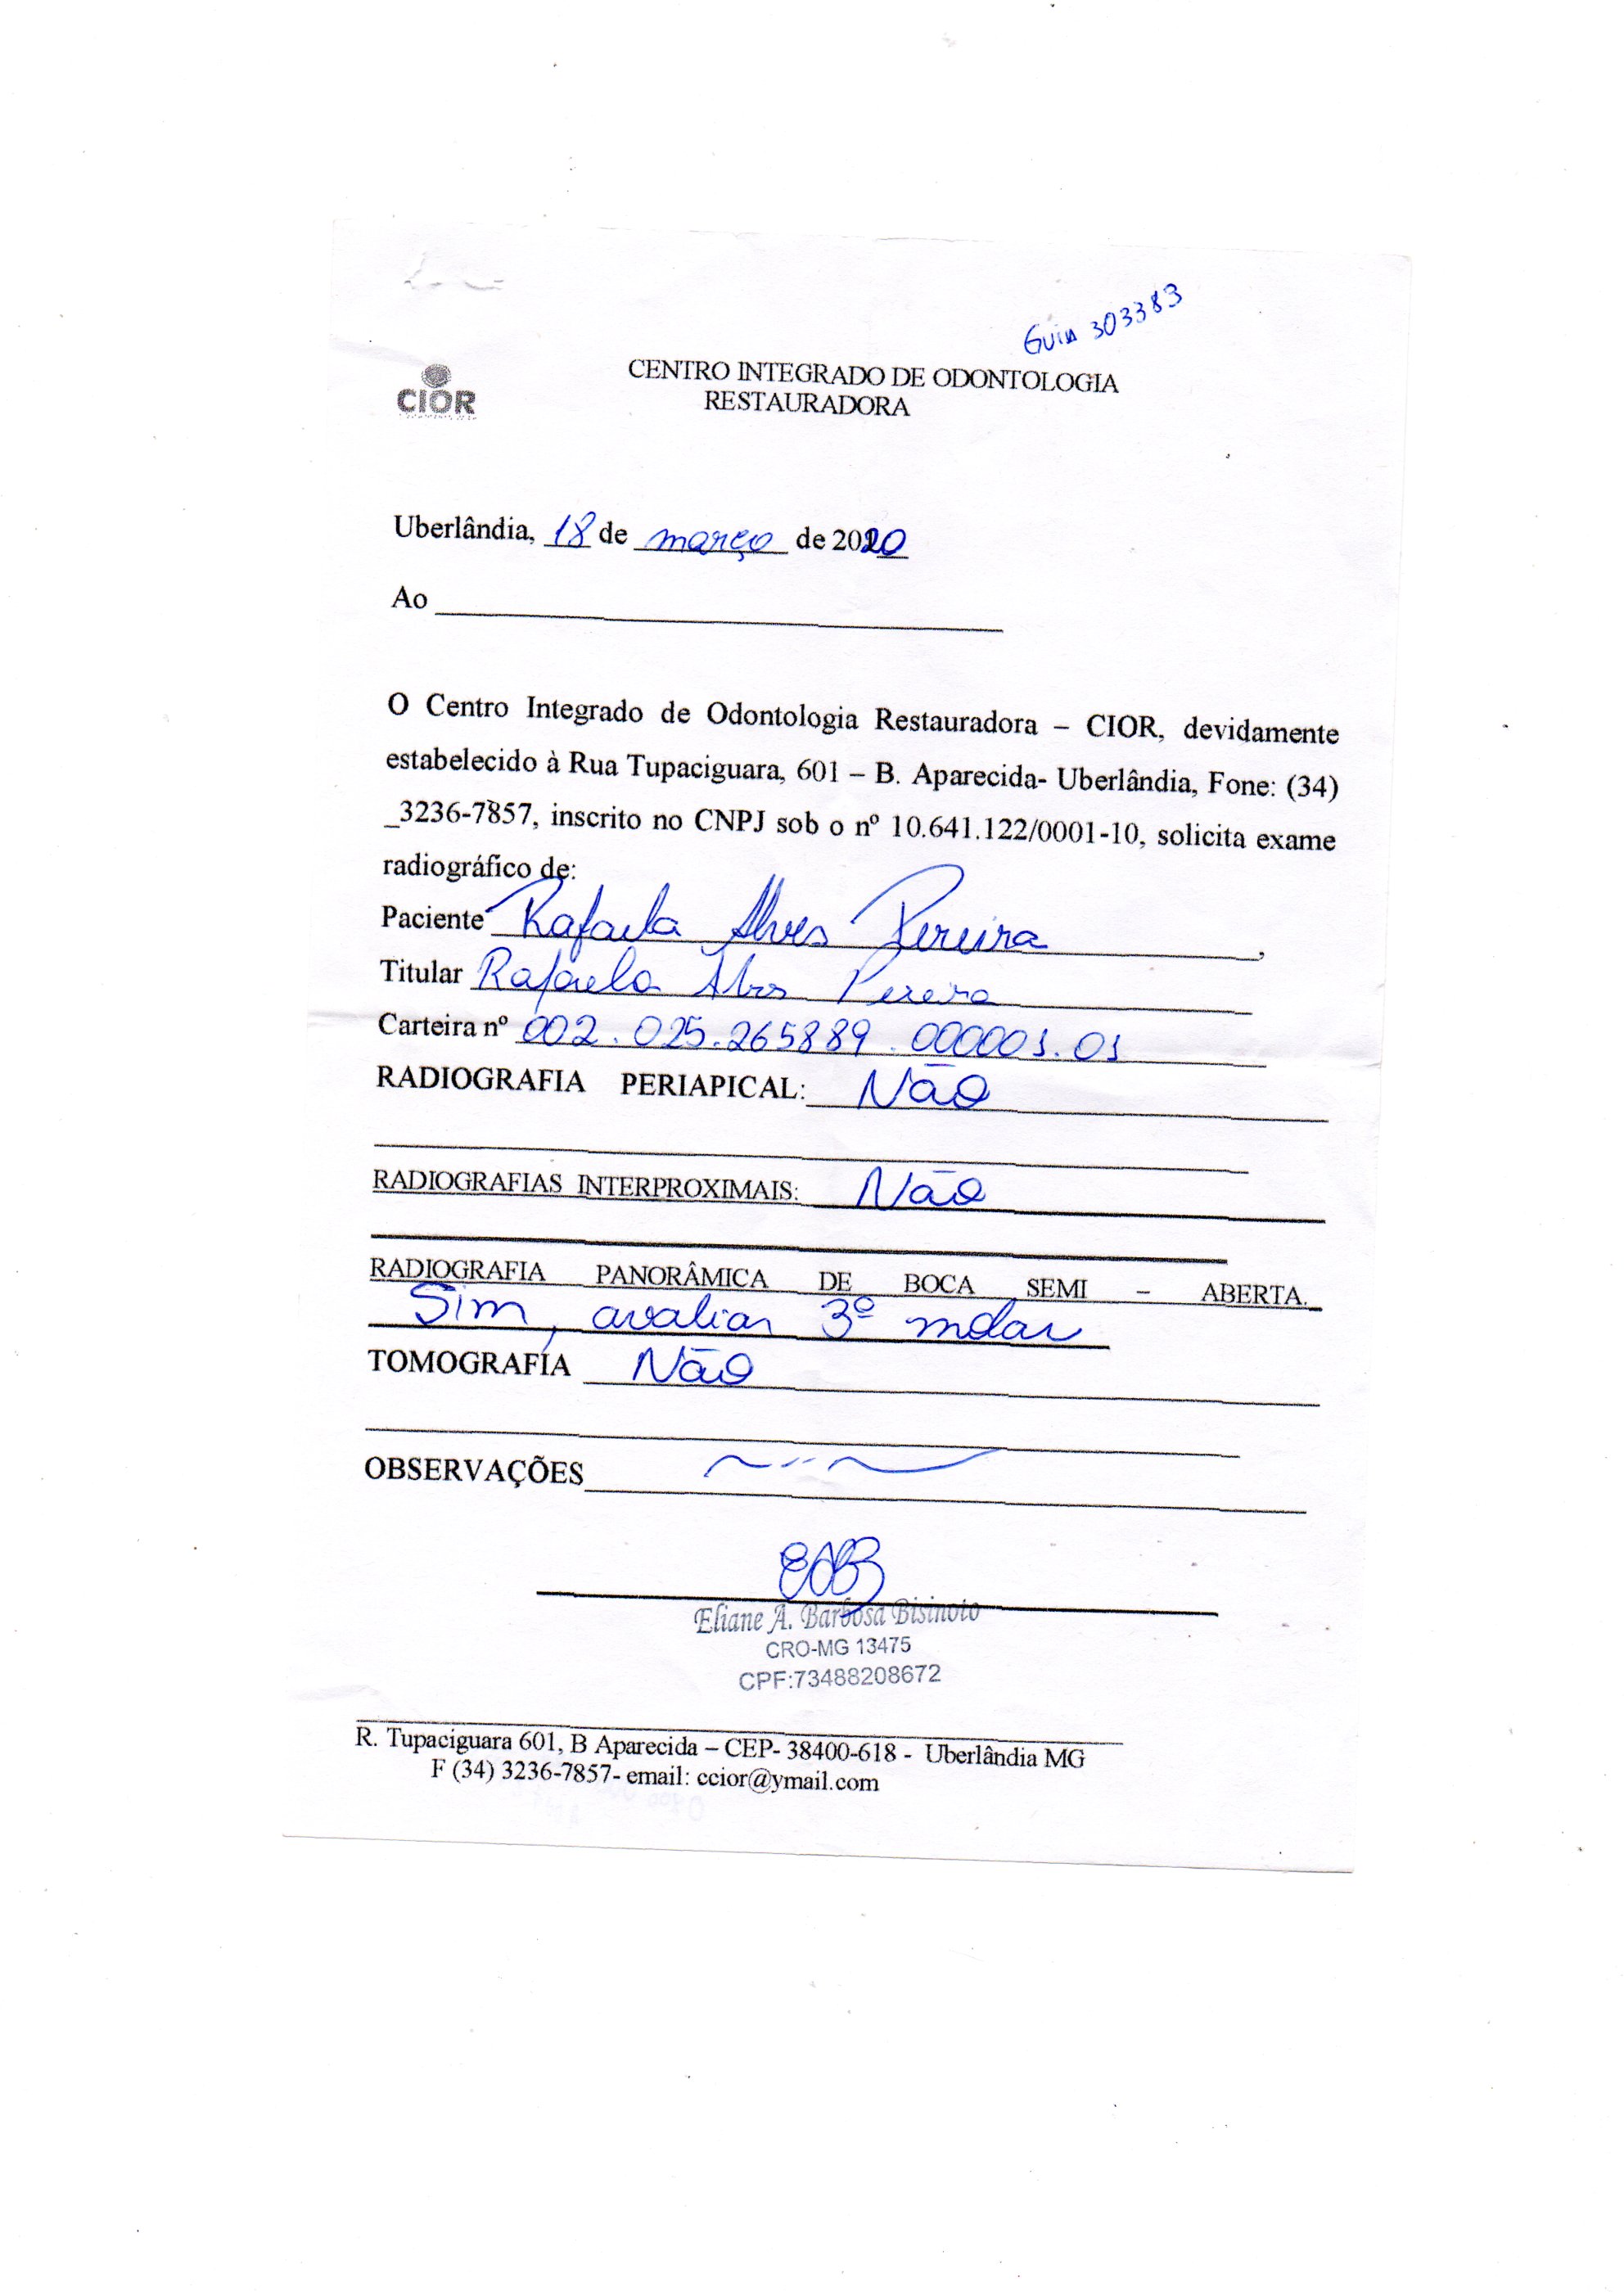 Guia 303383
CIOR
CENTRO INTEGRADO DE ODONTOLOGIA
RESTAURADORA
Uberlândia, 18 de março de 2020
Ao
O Centro Integrado de Odontologia Restauradora – CIOR, devidamente
estabelecido à Rua Tupaciguara, 601 – B. Aparecida- Uberlândia, Fone: (34)
_3236-7857, inscrito no CNPJ sob o nº 10.641.122/0001-10, solicita exame
radiográfico de:
Paciente Rafaela Alves Pereira,
Titular Rafaela Alves Pereira
Carteira nº 002.025.265889.000001.01
RADIOGRAFIA PERIAPICAL: Não
RADIOGRAFIAS INTERPROXIMAIS: Não
RADIOGRAFIA PANORÂMICA DE BOCA SEMI – ABERTA.
Sim, avaliar 3º molar
TOMOGRAFIA Não
OBSERVAÇÕES
Eliane A. Barbosa Bisinoto
CRO-MG 13475
CPF:73488208672
R. Tupaciguara 601, B Aparecida – CEP- 38400-618 - Uberlândia MG
F (34) 3236-7857- email: ccior@ymail.com